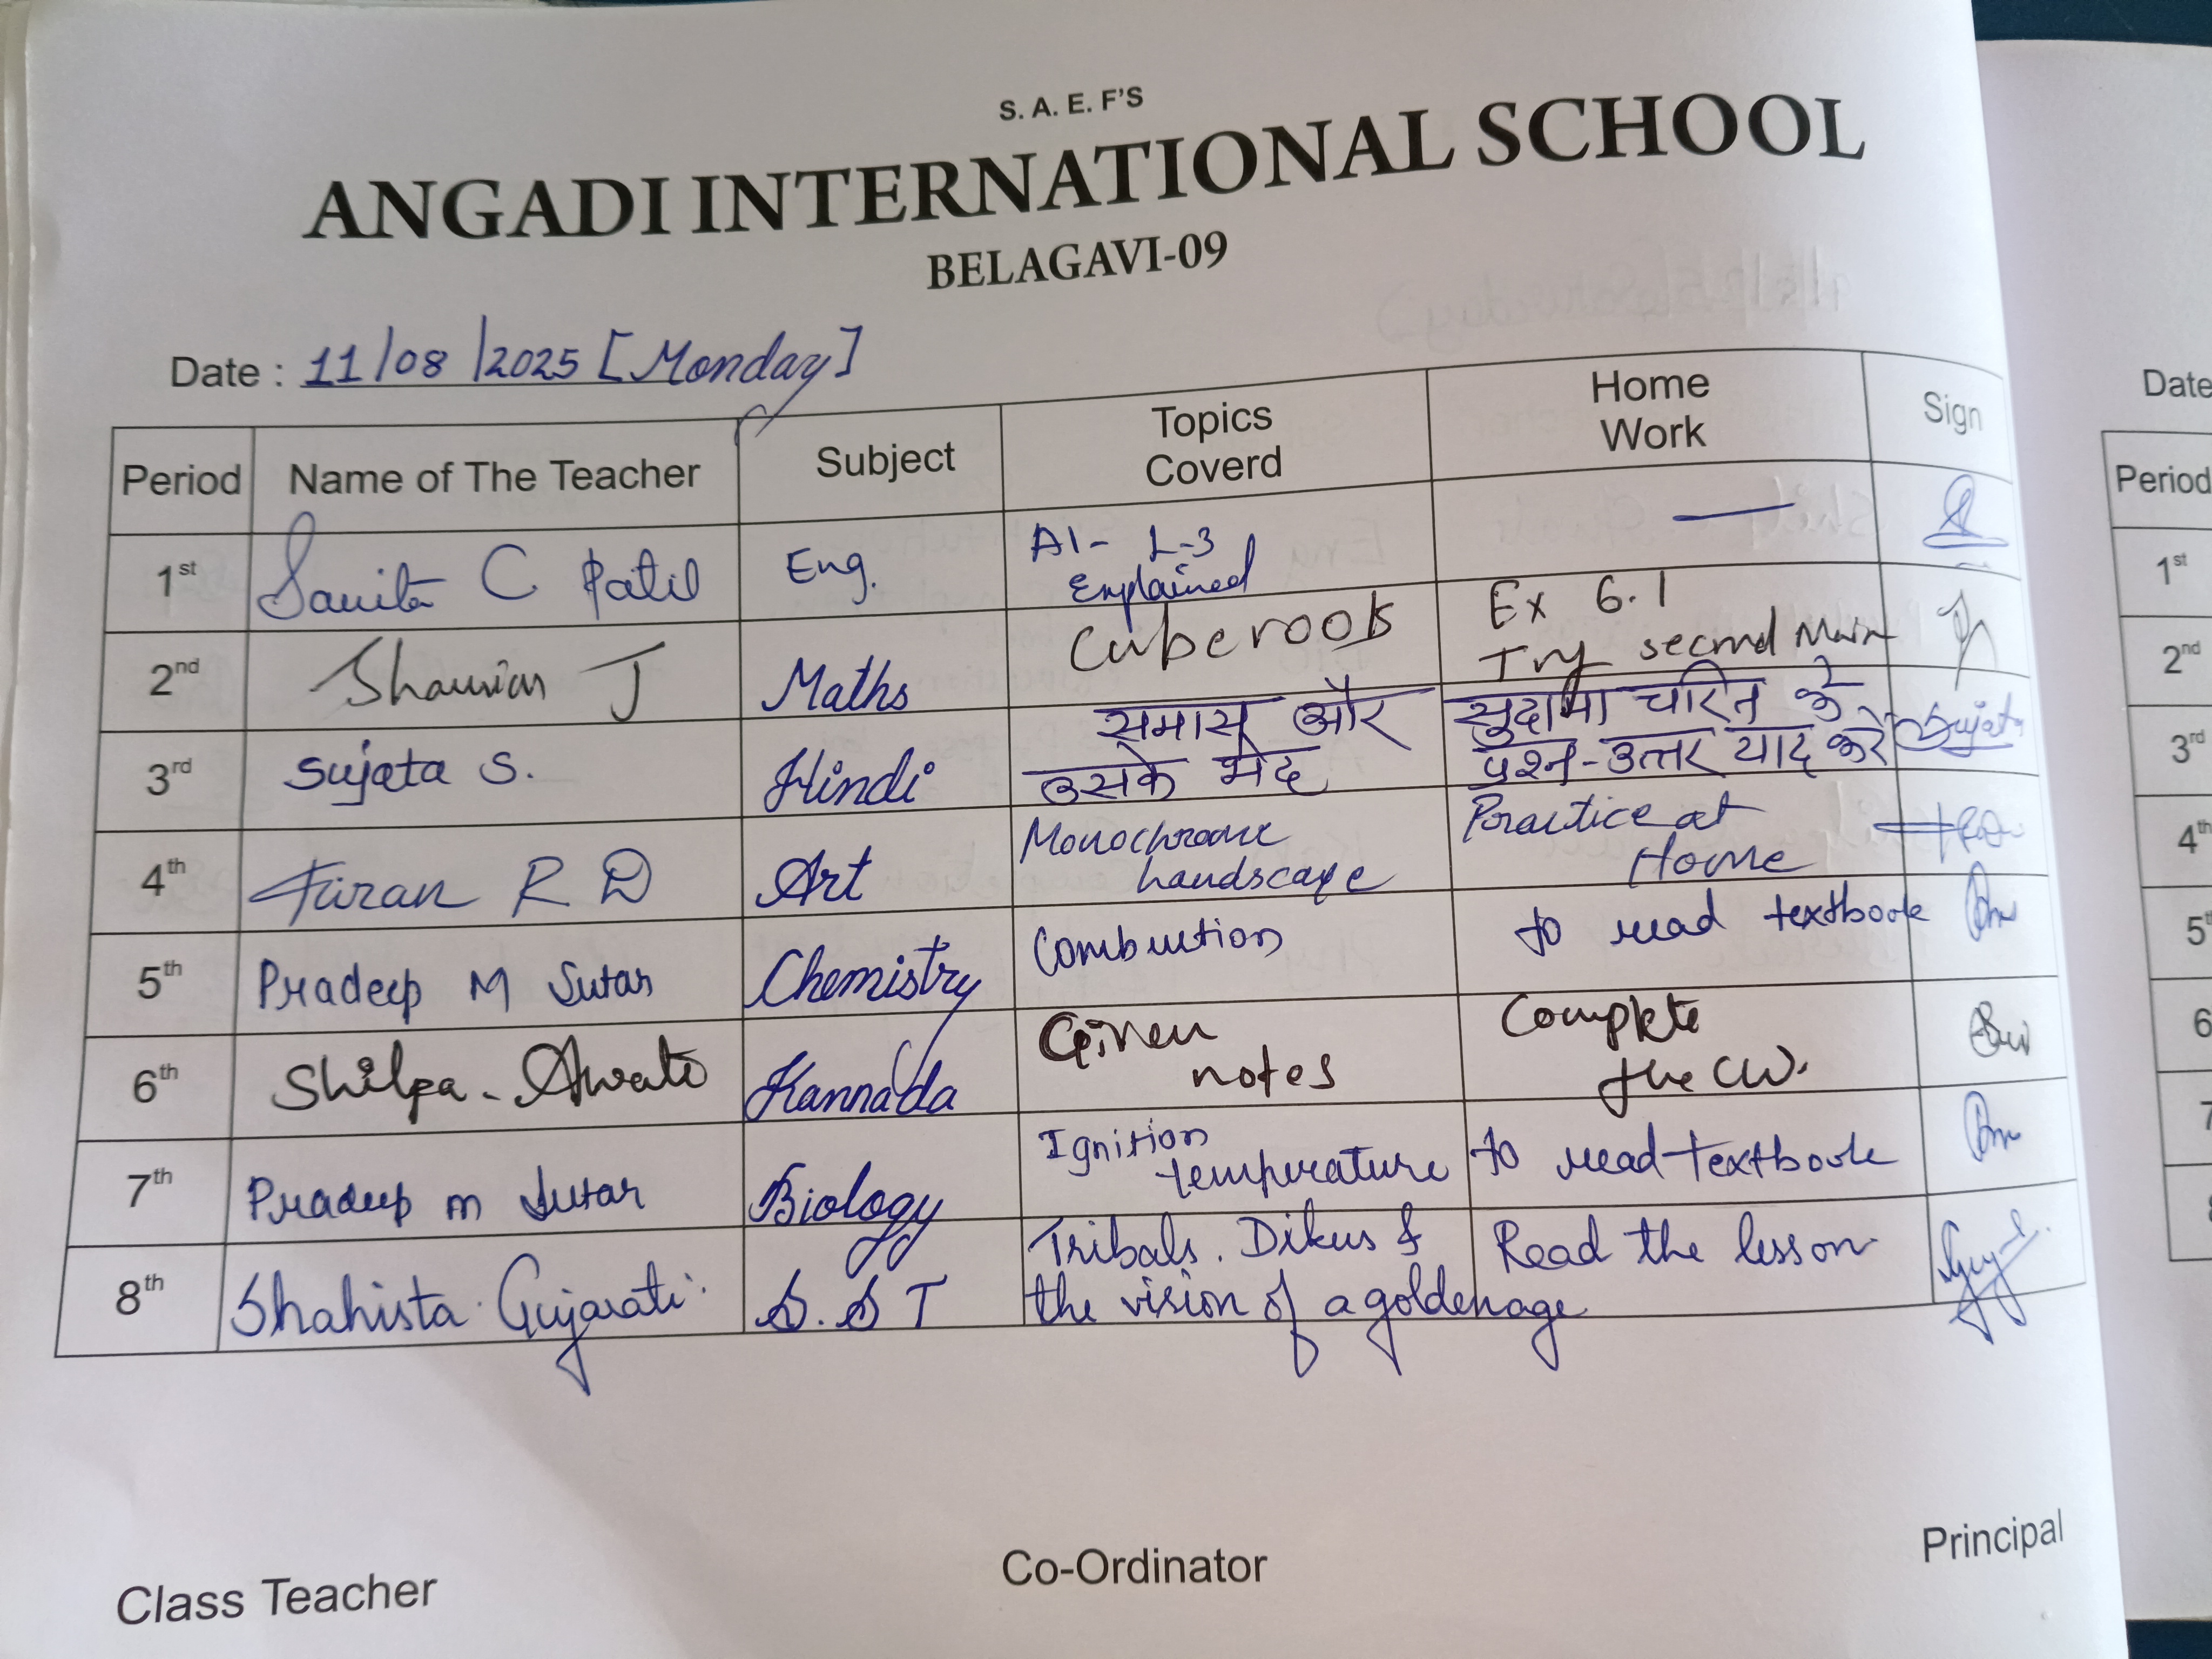 S. A. E. F'S
ANGADI INTERNATIONAL SCHOOL
BELAGAVI-09
Date : 11/08/2025 [Monday]
Period Name of The Teacher Subject Topics Coverd Home Work Sign
1st Savita C Patil Eng. A1- L-3 Explained —
2nd J Maths Cuberoots Ex 6.1 Try second Main
3rd Sujata S. Hindi समास और उसके भेद सुदामा चरित के प्रश्न-उत्तर याद करें Sujata
4th Kiran R D Art Monochrome Landscape Practice at Home
5th Pradeep M Sutar Chemistry Combustion to read textbook
6th Shilpa. Awati Kannada Given notes Complete the CW.
7th Pradeep M Sutar Biology Ignition temperature to read textbook
8th Shahista Gujarati. S.ST Tribals. Dikus & the vision of a golden age Read the lesson.
Class Teacher Co-Ordinator Principal
Date
Period
1st
2nd
3rd
4th
5t
6
7
8